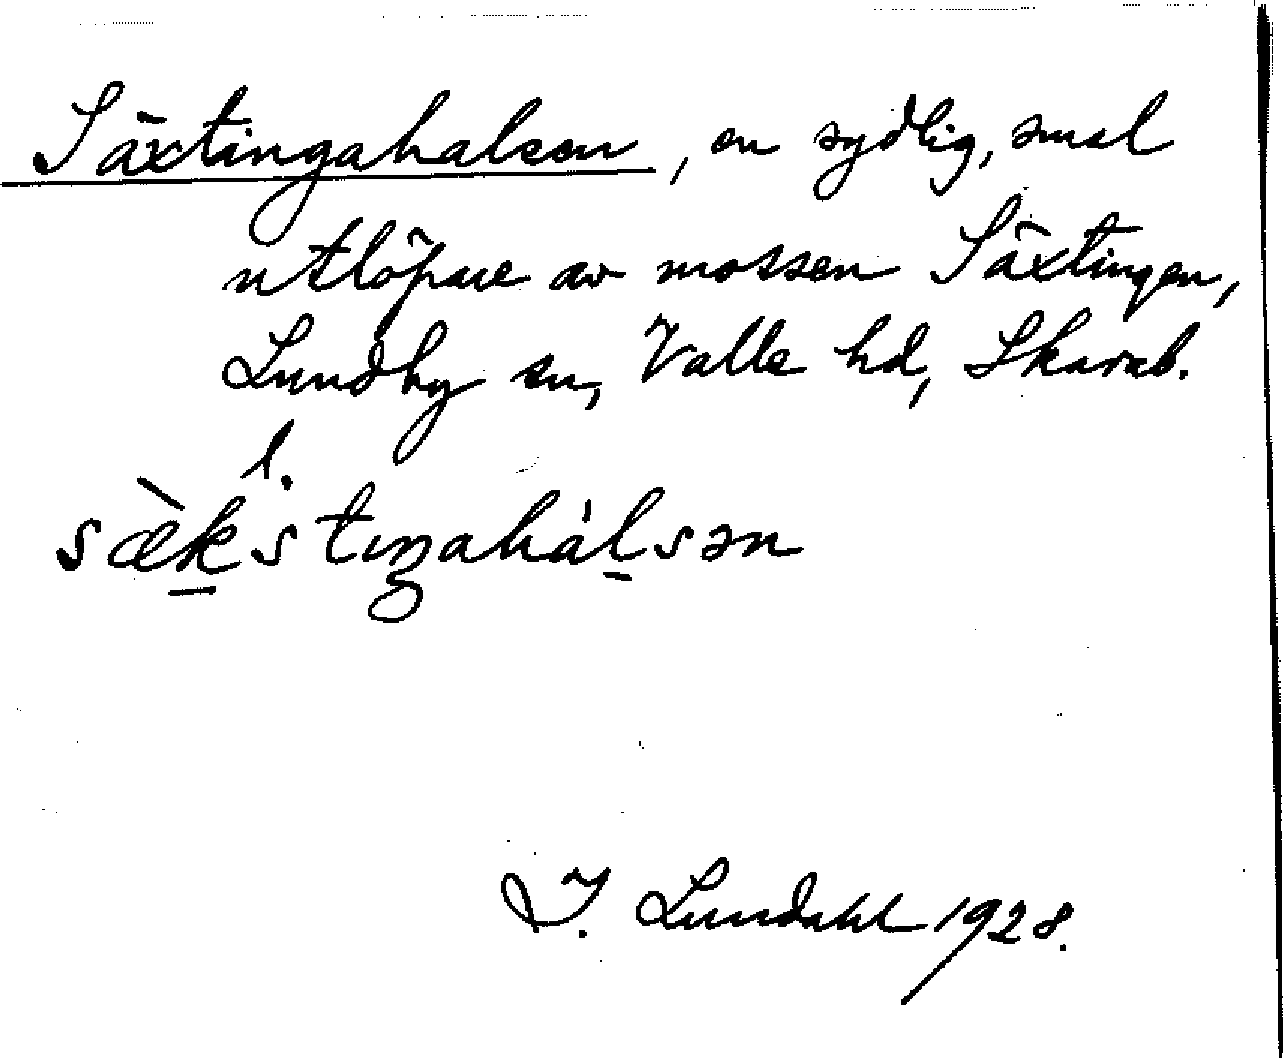 Säxtingahalsen, en sydlig, smal
utlöpare av mossen Säxtingen,
Lundby sn, Valle hd, Skarab.
l.
sæ̀k̠stıŋahál̠sən
I. Lundahl 1928.